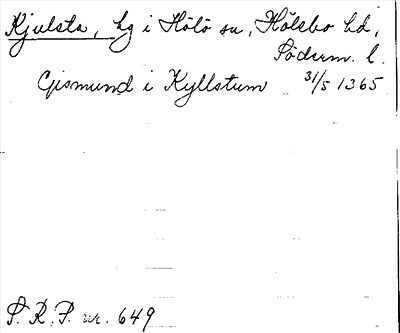 Kjulsta, hg i Hölö sn, Hölebo hd,
Söderm. l.
Gismund i Kyllstum 31/5 1365
S. R. P. nr. 649